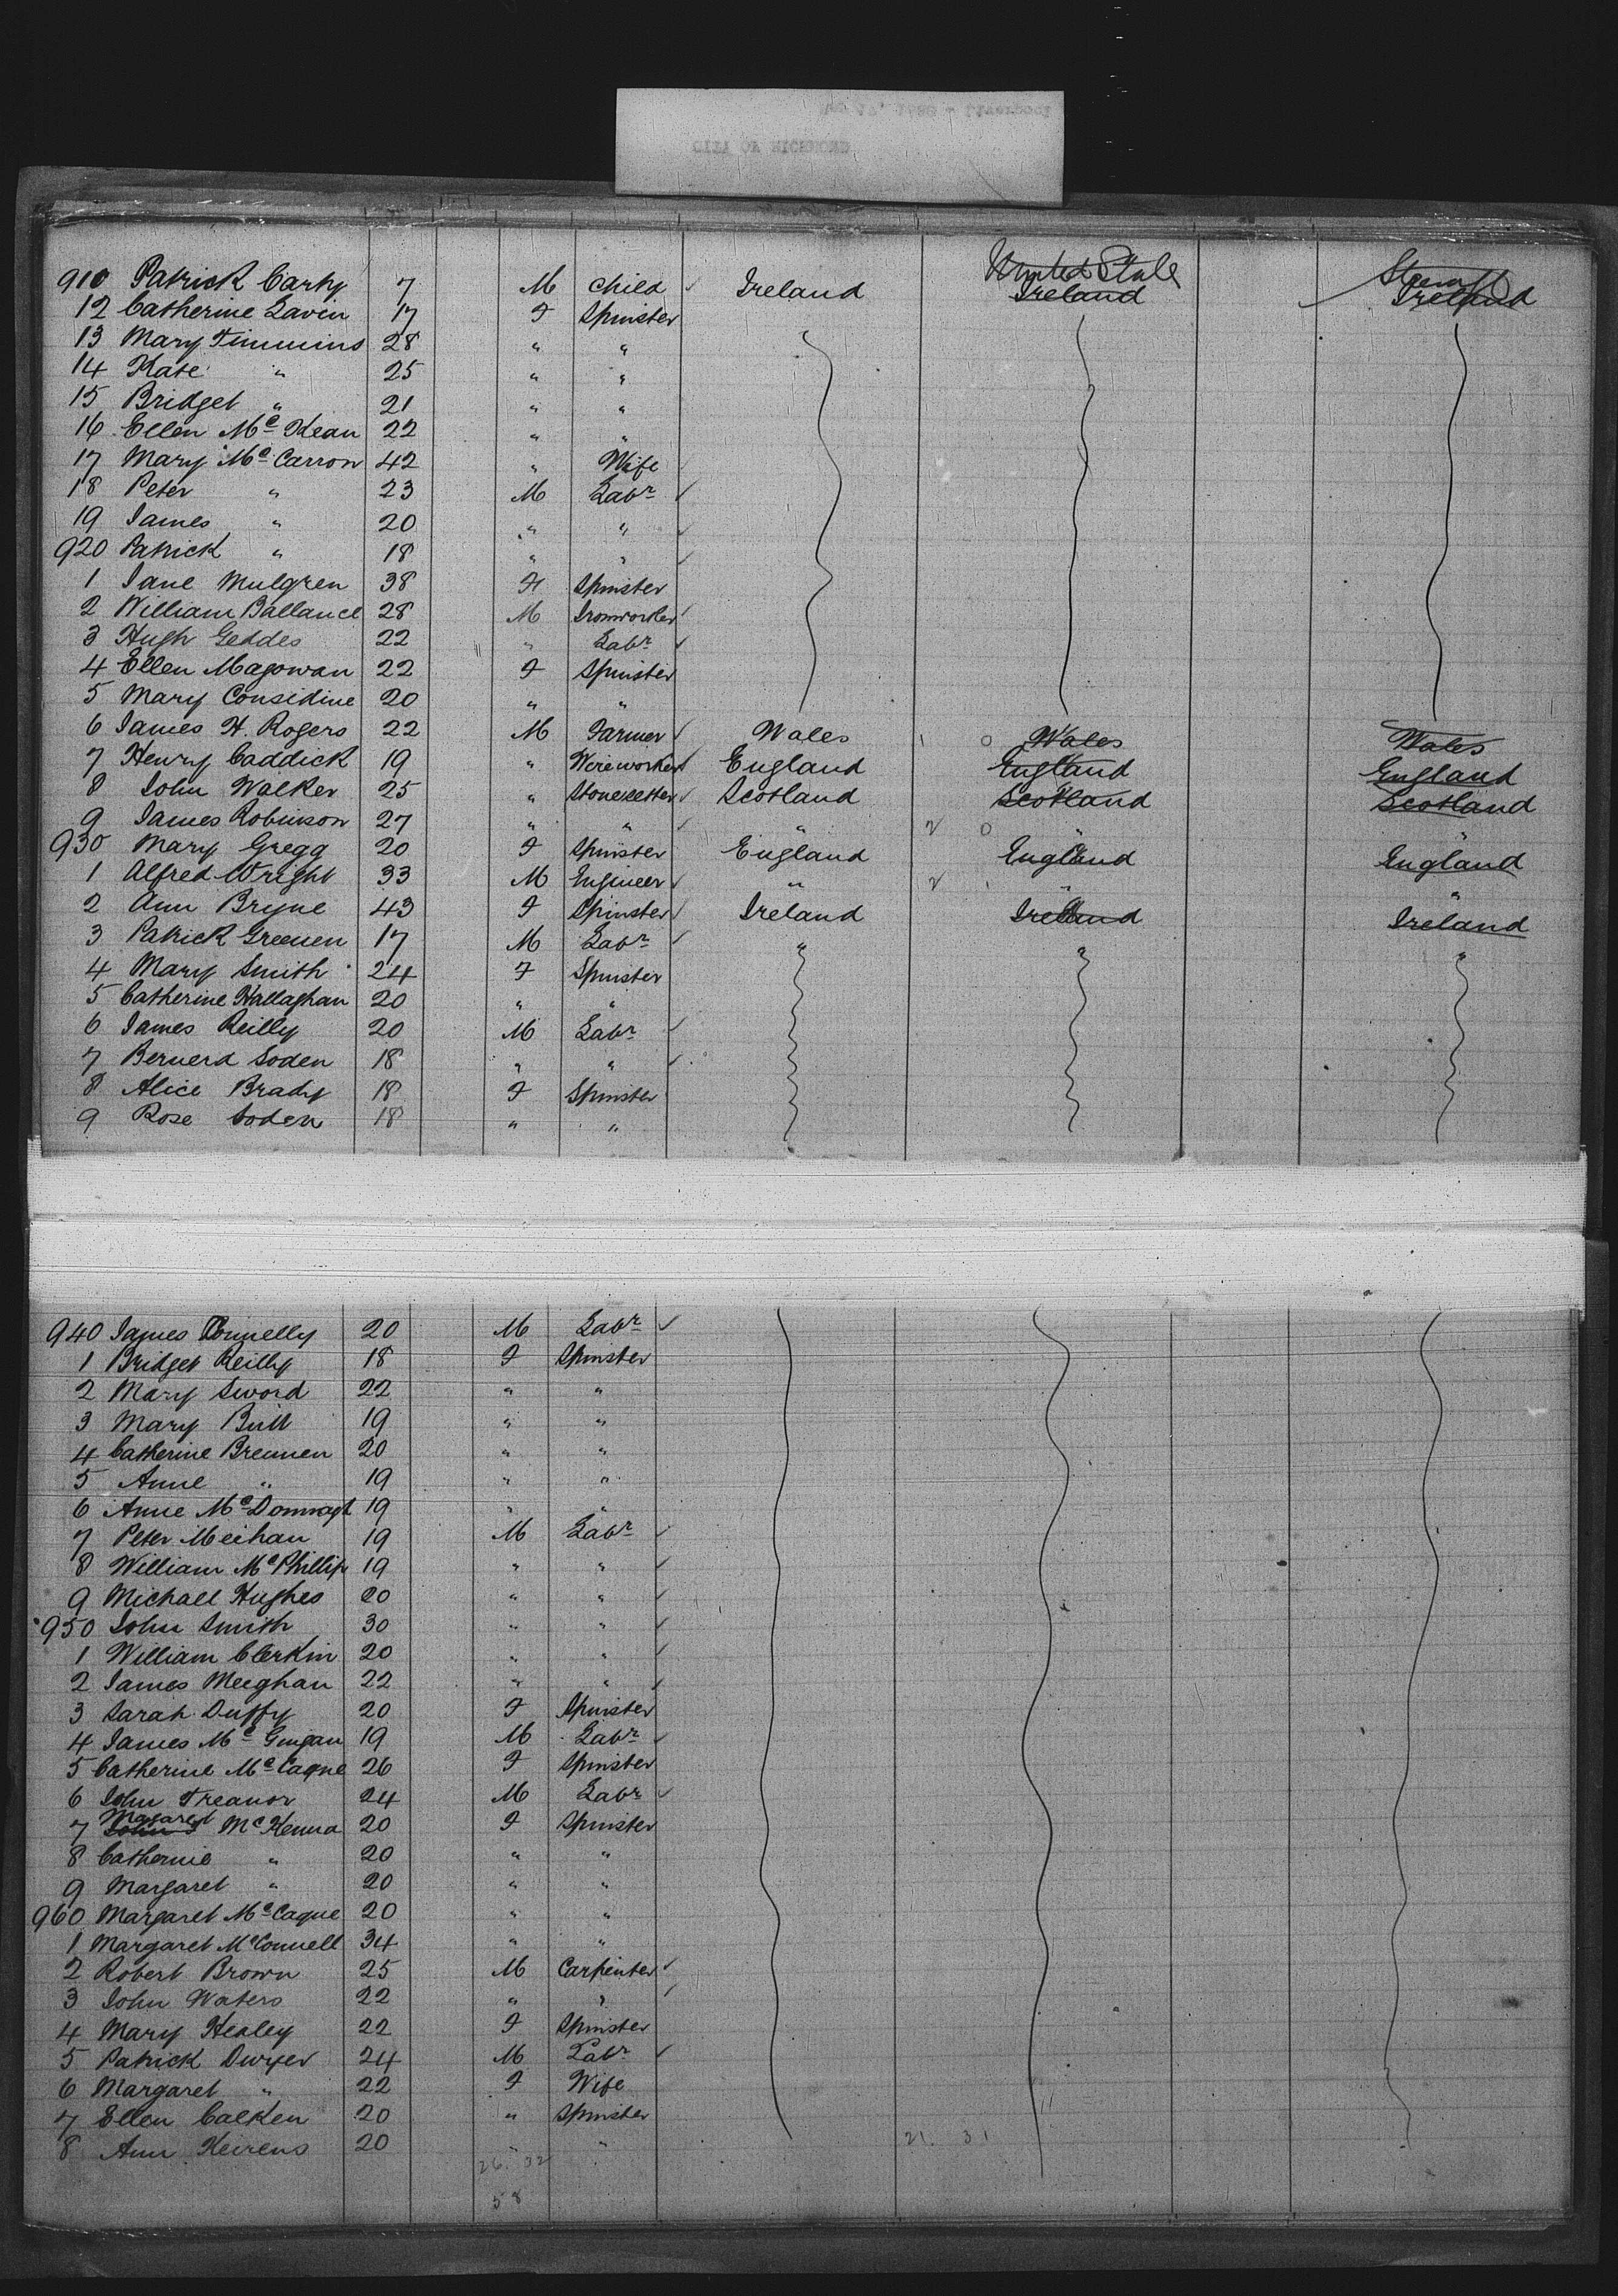 CITY OF RICHMOND
United State Steward
910 Patrick Carty 7 M Child ✓ Ireland Ireland Ireland
12 Catherine Lavin 17 F Spinster
13 Mary Timmins 28 " "
14 Kate " 25 " "
15 Bridget " 21 " "
16 Ellen McKean 22 " "
17 Mary McCarron 42 " Wife
18 Peter " 23 M Labr ✓
19 James " 20 " " ✓
920 Patrick " 18 " " ✓
1 Jane Mulgren 38 F Spinster
2 William Ballance 28 M Ironworker ✓
3 Hugh Geddes 22 " Labr ✓
4 Ellen Magowan 22 F Spinster
5 Mary Considine 20 " "
6 James H. Rogers 22 M Farmer ✓ Wales 1 0 Wales Wales
7 Henry Caddick 19 " Wireworker ✓ England England England
8 John Walker 25 " Stonecutter ✓ Scotland Scotland Scotland
9 James Robinson 27 " " ✓ " 2 0 " "
930 Mary Gregg 20 F Spinster England England England
1 Alfred Wright 33 M Engineer ✓ " 2 1 " "
2 Ann Bryne 43 F Spinster ✓ Ireland Ireland Ireland
3 Patrick Greenen 17 M Labr ✓ " " "
4 Mary Smith 24 F Spinster
5 Catherine Hallaghan 20 " "
6 James Reilly 20 M Labr ✓
7 Bernerd Soden 18 " " ✓
8 Alice Brady 18 F Spinster
9 Rose Soden 18 " "
940 James Connelly 20 M Labr ✓
1 Bridget Reilly 18 F Spinster
2 Mary Sword 22 " "
3 Mary 19 " "
4 Catherine Brennen 20 " "
5 Anne " 19 " "
6 Anne McDonnagh 19 " "
7 Peter Meihan 19 M Labr ✓
8 William McPhillip 19 " " ✓
9 Michael Hughes 20 " " ✓
950 John Smith 30 " " ✓
1 William Clerkin 20 " " ✓
2 James Meeghan 22 " " ✓
3 Sarah Duffy 20 F Spinster
4 James McGuigan 19 M Labr ✓
5 Catherine McCague 26 F Spinster
6 John Treanor 24 M Labr ✓
7 Magaret McKenna 20 F Spinster
8 Catherine " 20 " "
9 Margaret " 20 " "
960 Margaret McCague 20 " "
1 Margaret McConnell 34 " "
2 Robert Brown 25 M Carpenter ✓
3 John Waters 22 " " ✓
4 Mary Healey 22 F Spinster
5 Patrick Dwyer 24 M Labr ✓
6 Margaret " 22 F Wife
7 Ellen Calken 20 " Spinster
8 Ann Keirens 20 " " 21. 31
26. 32
58